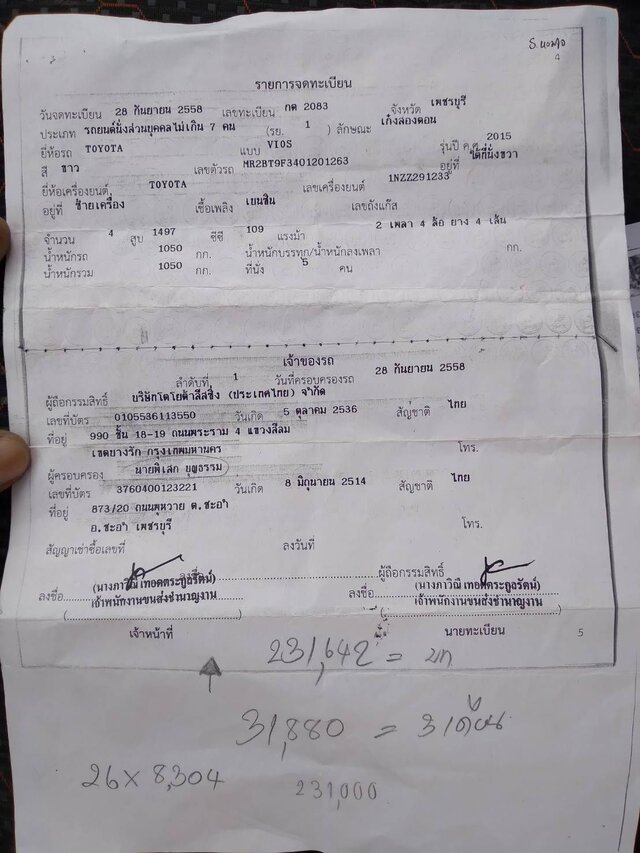 4
รายการจดทะเบียน
วันจดทะเบียน 28 กันยายน 2558 เลขทะเบียน กต 2083 จังหวัด เพชรบุรี
ประเภท รถยนต์นั่งส่วนบุคคลไม่เกิน 7 คน (รย. 1 ) ลักษณะ เก๋งสองตอน
ยี่ห้อรถ TOYOTA แบบ VIOS รุ่นปี ค.ศ. 2015
สี ขาว เลขตัวรถ MR2BT9F3401201263 อยู่ที่ ใต้ที่นั่งขวา
ยี่ห้อเครื่องยนต์ TOYOTA เลขเครื่องยนต์ 1NZZ291233
อยู่ที่ ซ้ายเครื่อง เชื้อเพลิง เบนซิน เลขถังแก๊ส
จำนวน 4 สูบ 1497 ซีซี 109 แรงม้า 2 เพลา 4 ล้อ ยาง 4 เส้น
น้ำหนักรถ 1050 กก. น้ำหนักบรรทุก/น้ำหนักลงเพลา กก.
น้ำหนักรวม 1050 กก. ที่นั่ง 5 คน
เจ้าของรถ
ลำดับที่ 1 วันที่ครอบครองรถ 28 กันยายน 2558
ผู้ถือกรรมสิทธิ์ บริษัทโตโยต้าลีสซิ่ง (ประเทศไทย) จำกัด
เลขที่บัตร 0105536113550 วันเกิด 5 ตุลาคม 2536 สัญชาติ ไทย
ที่อยู่ 990 ชั้น 18-19 ถนนพระราม 4 แขวงสีลม
เขตบางรัก กรุงเทพมหานคร โทร.
ผู้ครอบครอง นายพิเสก บุญธรรม
เลขที่บัตร 3760400123221 วันเกิด 8 มิถุนายน 2514 สัญชาติ ไทย
ที่อยู่ 873/20 ถนน ต.ชะอำ
อ.ชะอำ เพชรบุรี โทร.
สัญญาเช่าซื้อเลขที่ ลงวันที่
ผู้ถือกรรมสิทธิ์
(นางภาวิณี เทอดตระกูลรัตน์) (นางภาวิณี เทอดตระกูลรัตน์)
ลงชื่อ เจ้าพนักงานขนส่งชำนาญงาน ลงชื่อ เจ้าพนักงานขนส่งชำนาญงาน
เจ้าหน้าที่ นายทะเบียน 5
231,642 =
31,880 = 3
26 x 8,304 231,000